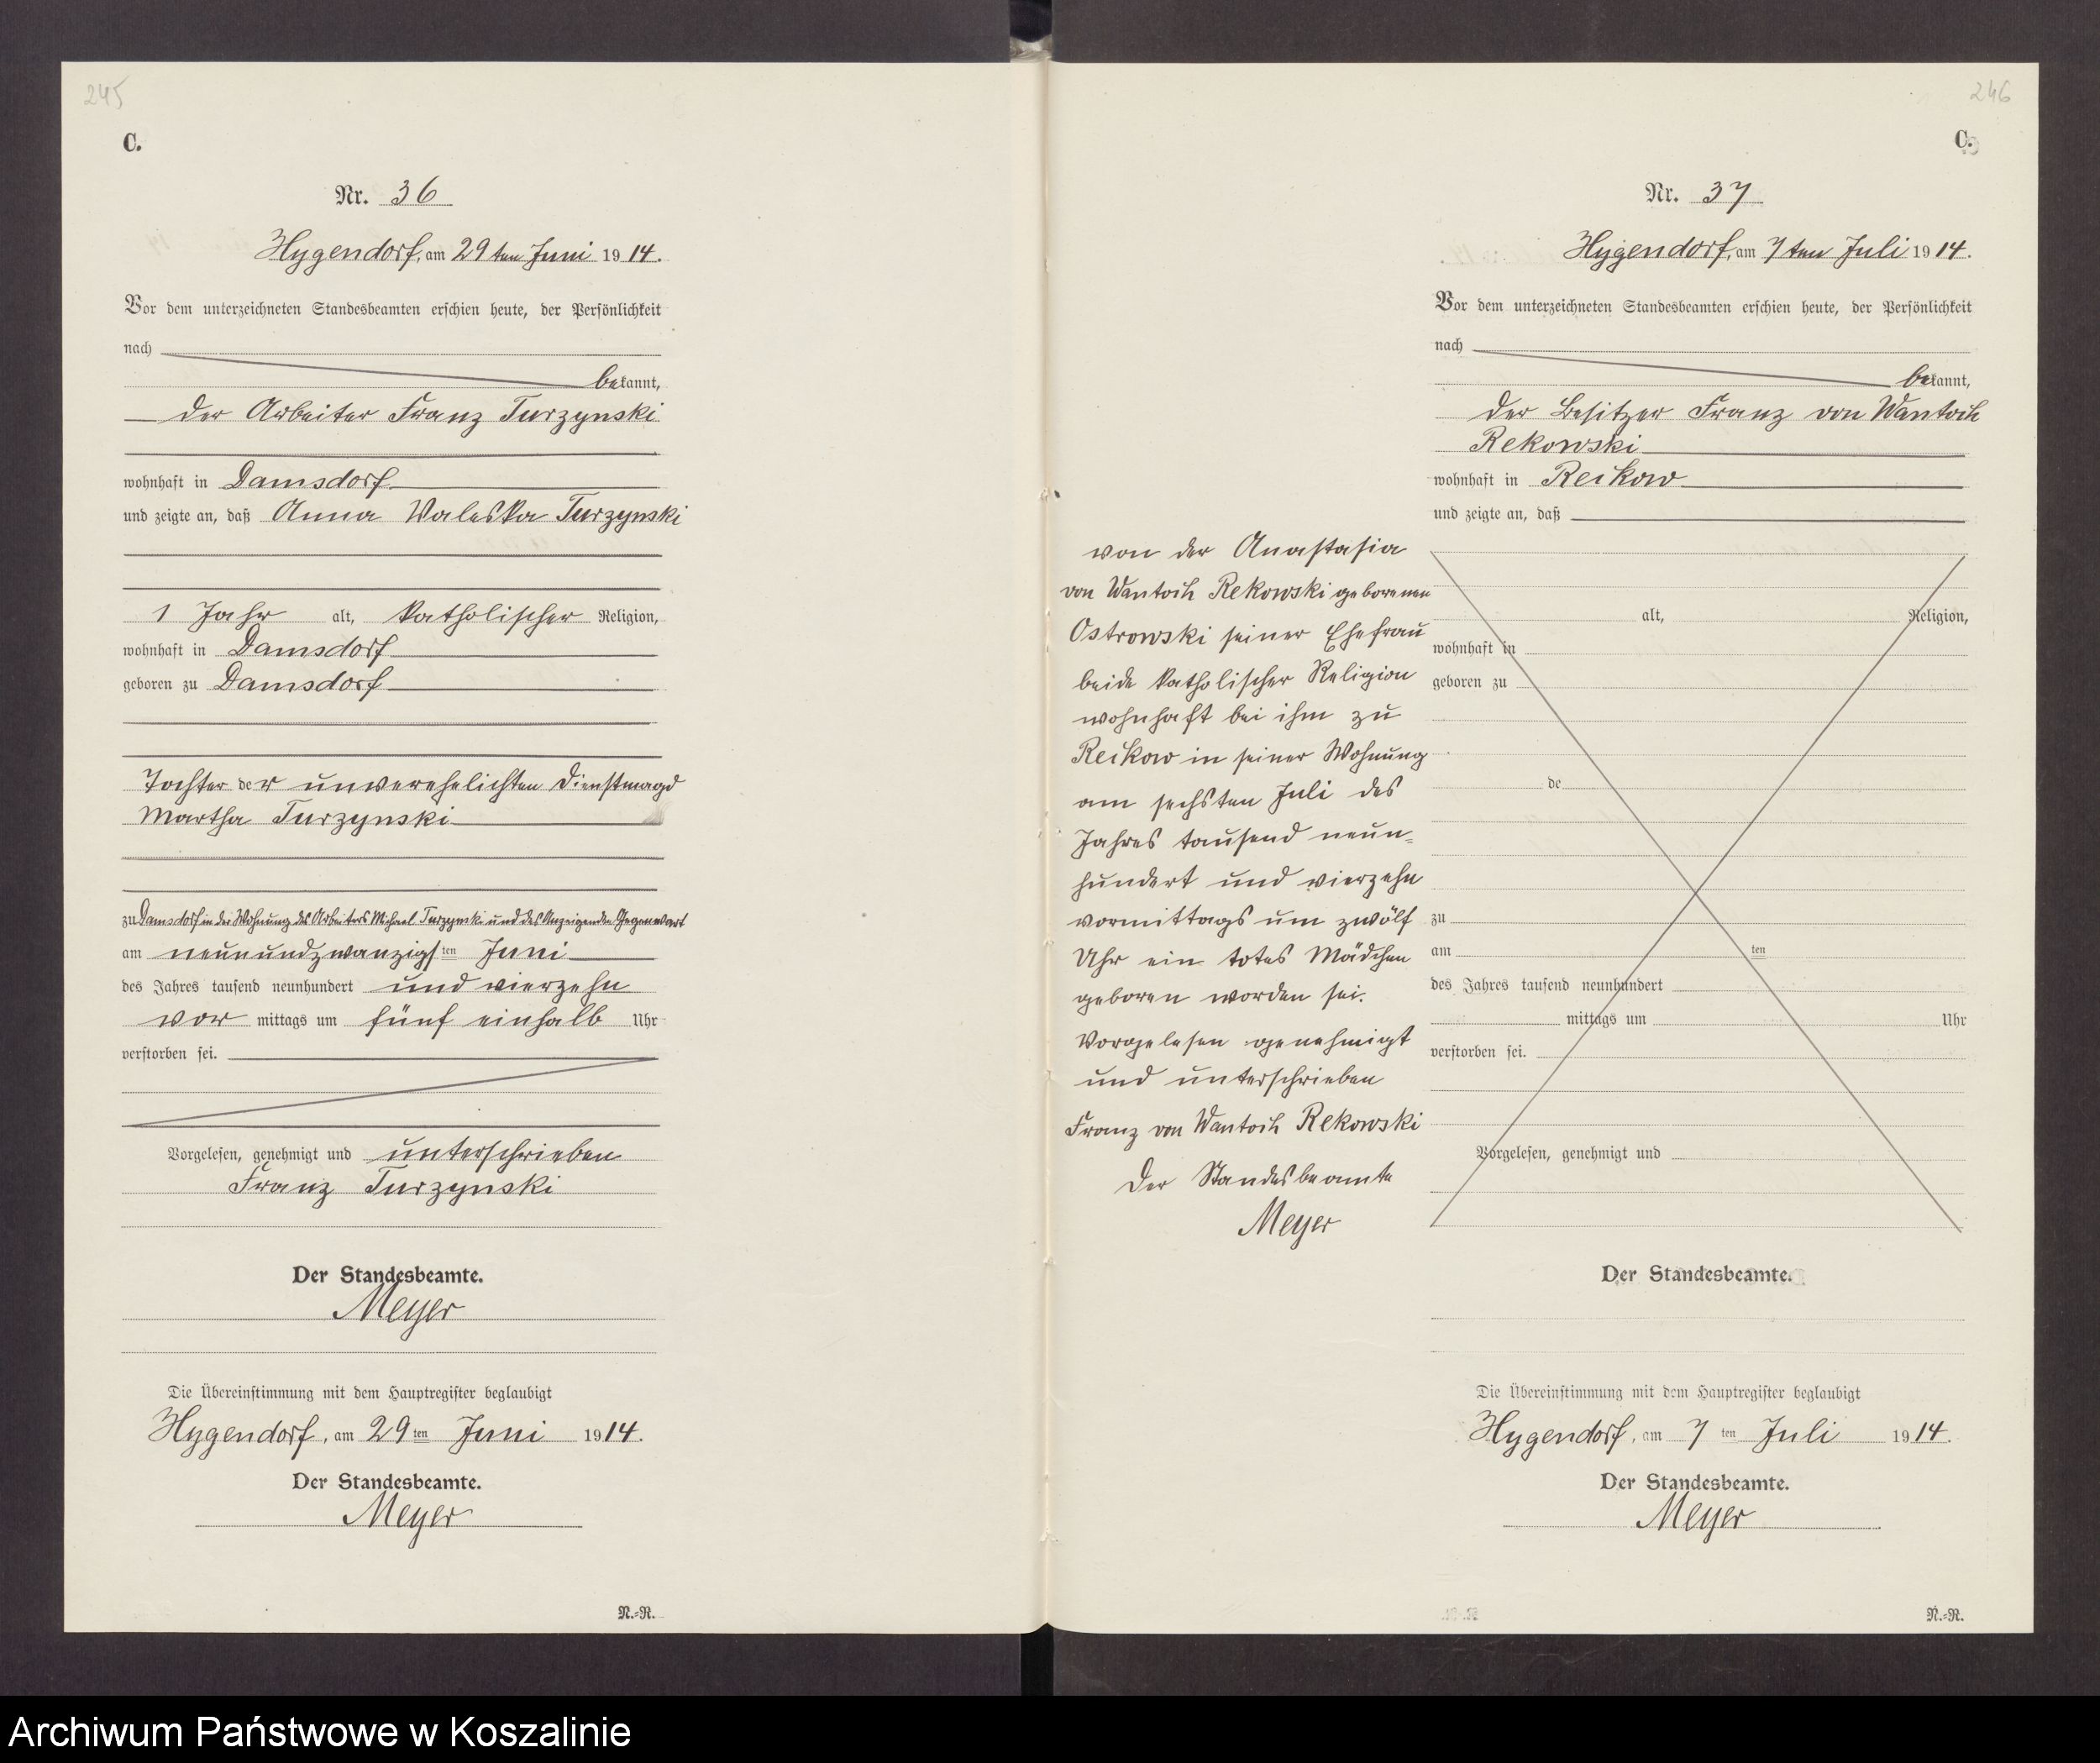 245
C.
Nr. 36
Hygendorf, am 29ten Juni 1914.
Vor dem unterzeichneten Standesbeamten erschien heute, der Persönlichkeit
nach
bekannt,
der Arbeiter Franz Turzynski
wohnhaft in Damsdorf
und zeigte an, daß Anna Waleska Turzynski
1 Jahr alt, katholischer Religion,
wohnhaft in Damsdorf
geboren zu Damsdorf
Tochter der unverehelichten Dienstmagd
Martha Turzynski
zu Damsdorf in der Wohnung des Arbeiters Michael Turzynski und des Anzeigenden Gegenwart
am neunundzwanzigsten Juni
des Jahres tausend neunhundert und vierzehn
vor mittags um fünf einhalb Uhr
verstorben sei.
Vorgelesen, genehmigt und unterschrieben
Franz Turzynski
Der Standesbeamte.
Meyer
Die Übereinstimmung mit dem Hauptregister beglaubigt
Hygendorf, am 29ten Juni 1914.
Der Standesbeamte.
Meyer
N.=R.
246
C.
Nr. 37
Hygendorf, am 7ten Juli 1914.
Vor dem unterzeichneten Standesbeamten erschien heute, der Persönlichkeit
nach
bekannt,
der Besitzer Franz von Wantoch
Rekowski
wohnhaft in Reckow
und zeigte an, daß
von der Anastasia
von Wantoch Rekowski geborenen
Ostrowski seiner Ehefrau
beide katholischer Religion
wohnhaft bei ihm zu
Reckow in seiner Wohnung
am sechsten Juli des
Jahres tausend neun=
hundert und vierzehn
vormittags um zwölf
Uhr ein totes Mädchen
geboren worden sei.
Vorgelesen genehmigt
und unterschrieben
Franz von Wantoch Rekowski
Der Standesbeamte
Meyer
alt, Religion,
wohnhaft in
geboren zu
de
zu
am ten
des Jahres tausend neunhundert
mittags um Uhr
verstorben sei.
Vorgelesen, genehmigt und
Der Standesbeamte.
Die Übereinstimmung mit dem Hauptregister beglaubigt
Hygendorf, am 7 ten Juli 1914.
Der Standesbeamte.
Meyer
N.=R.
Archiwum Państwowe w Koszalinie